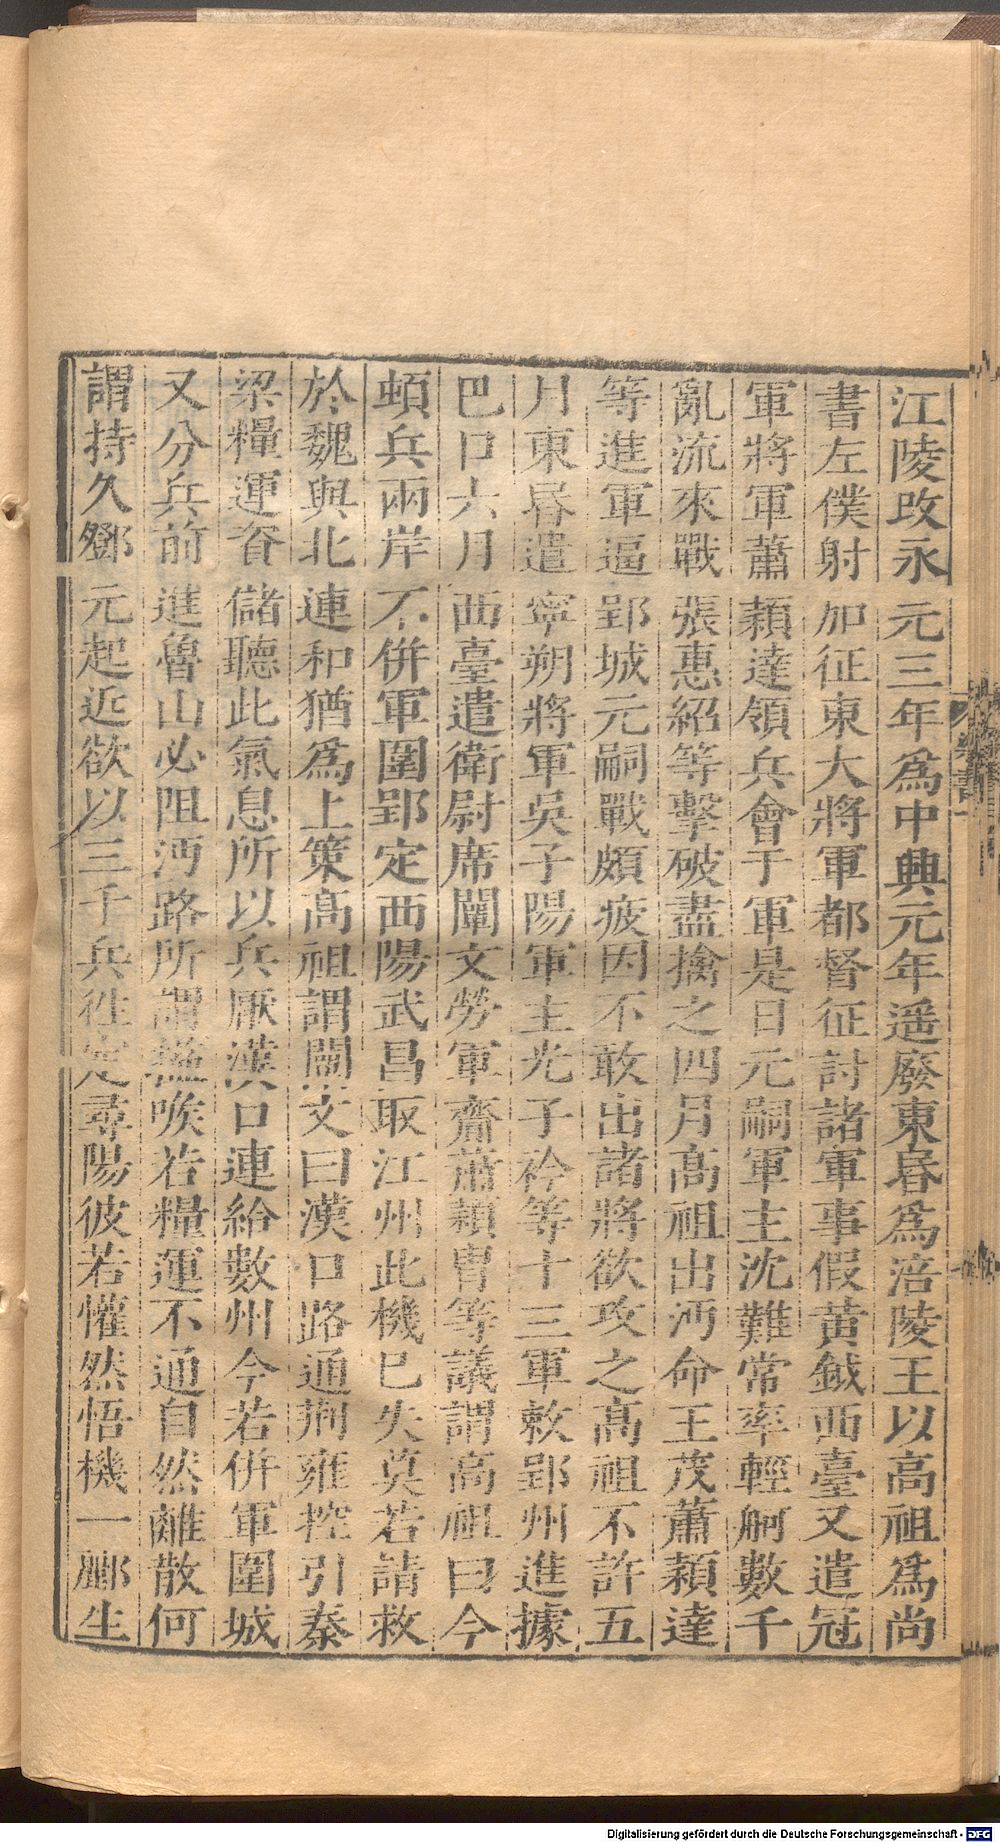 江陵改永元三年為中興元年遥廢東昏為涪陵王以高祖為尚
書左僕射加征東大將軍都督征討諸軍事假黄鉞西臺又遣冠
軍將軍蕭穎達領兵會于軍是日元嗣軍主沈難當率輕舸數千
亂流來戰張惠紹等擊破盡擒之四月高祖出沔命王茂蕭穎達
等進軍逼郢城元嗣戰頗疲因不敢出諸將欲攻之高祖不許五
月東昏遣寧朔將軍吳子陽軍主光子衿等十三軍救郢州進據
巴口六月西臺遣衛尉席闡文勞軍齎蕭穎胄等議謂高祖曰今
頓兵兩岸不併軍圍郢定西陽武昌取江州此機已失莫若請救
於魏與北連和猶為上策高祖謂闡文曰漢口路通荊雍控引秦
梁糧運資儲聽此氣息所以兵厭漢口連給數州今若併軍圍城
又分兵前進魯山必阻沔路所謂搤喉若糧運不通自然離散何
謂持久鄧元起近欲以三千兵往定尋陽彼若懽然悟機一酈生
梁書一
Digitalisierung gefördert durch die Deutsche Forschungsgemeinschaft - DFG